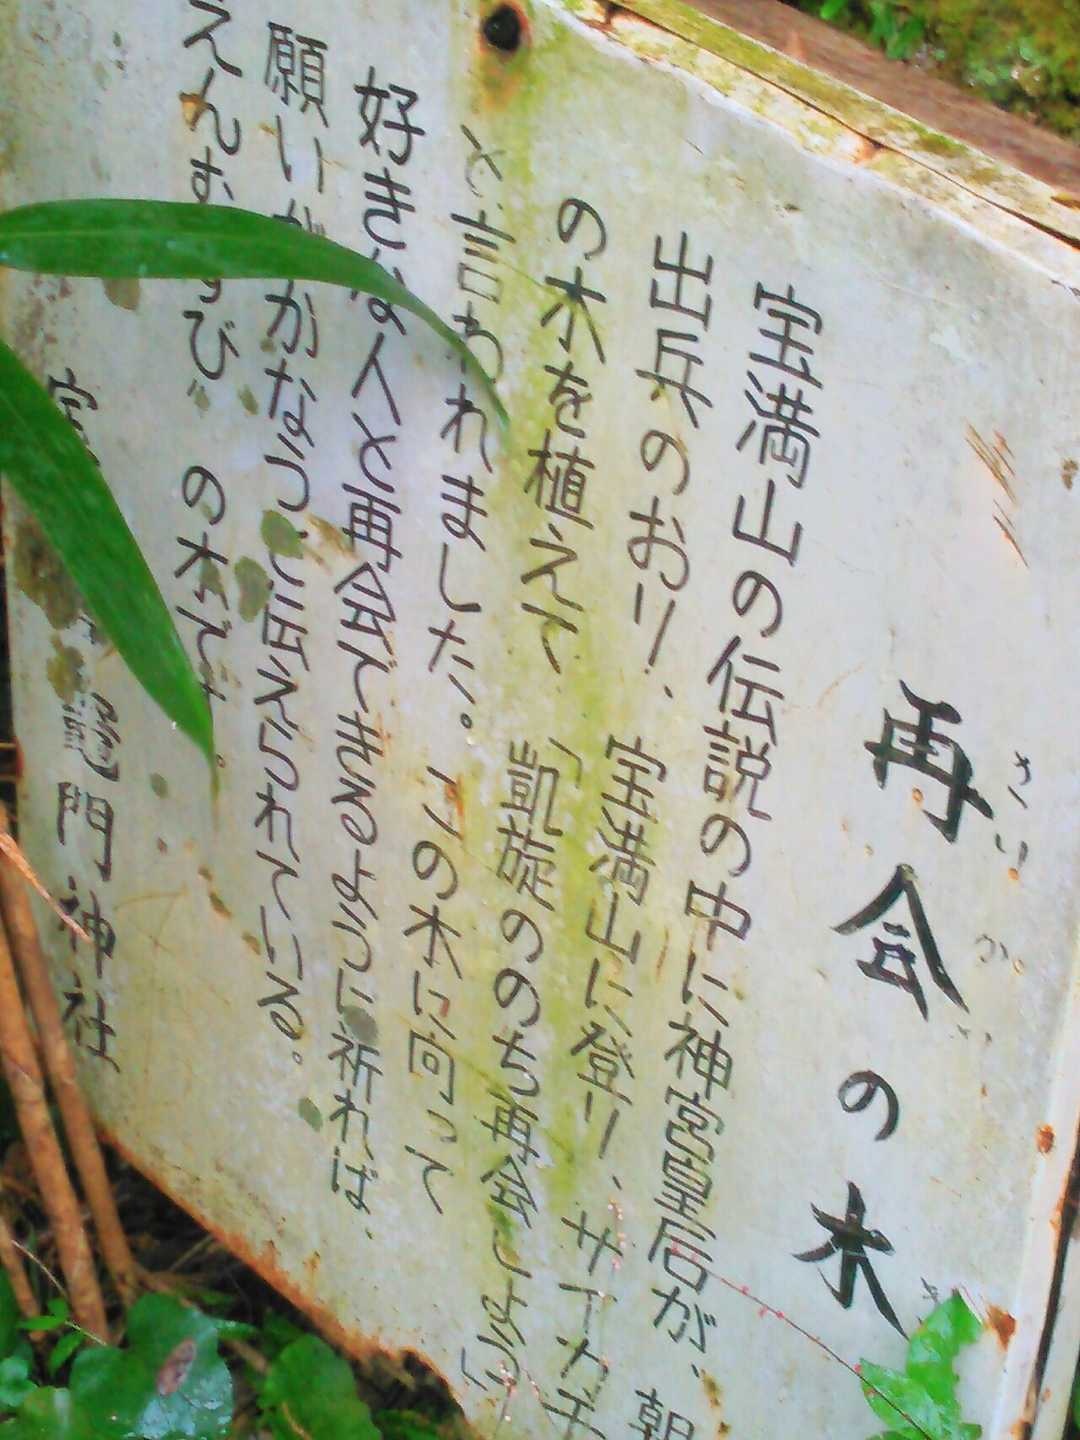 再会の木
さいかいのき
宝満山の伝説の中に神宮皇后が、朝
出兵のおり、宝満山に登り、サイカチ
の木を植えて、凱旋ののち再会しよう
と言われました。この木に向って
好きな人と再会できるように祈れば、
願いがかなうと伝えられている。
えんむすび〟の木です。
竈門神社